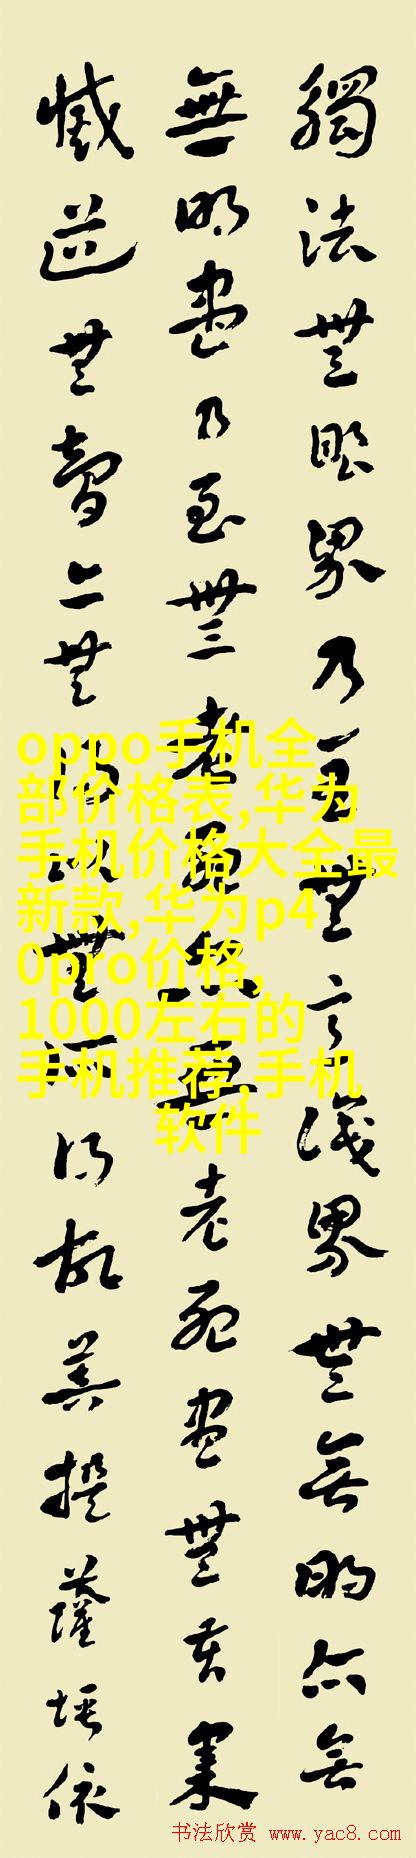 觸法無眼界乃至無意識界無無明亦無
無明盡乃至無老死亦無老死盡無苦集
滅道無智亦無得以無所得故菩提薩埵依
oppo手机全
部价格表,华为
手机价格大全最
新款,华为p4
0pro价格,
1000左右的
手机推荐,手机
软件
书法欣赏 www.yac8.com